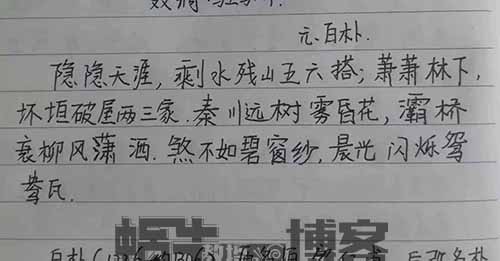 元.白朴.
隐隐天涯，剩水残山五六搭；萧萧林下，
坏垣破屋两三家.秦川远树雾昏花，灞桥
衰柳风潇洒.煞不如碧窗纱，晨光闪烁鸳
鸯瓦.
蜗牛 博客
白朴(